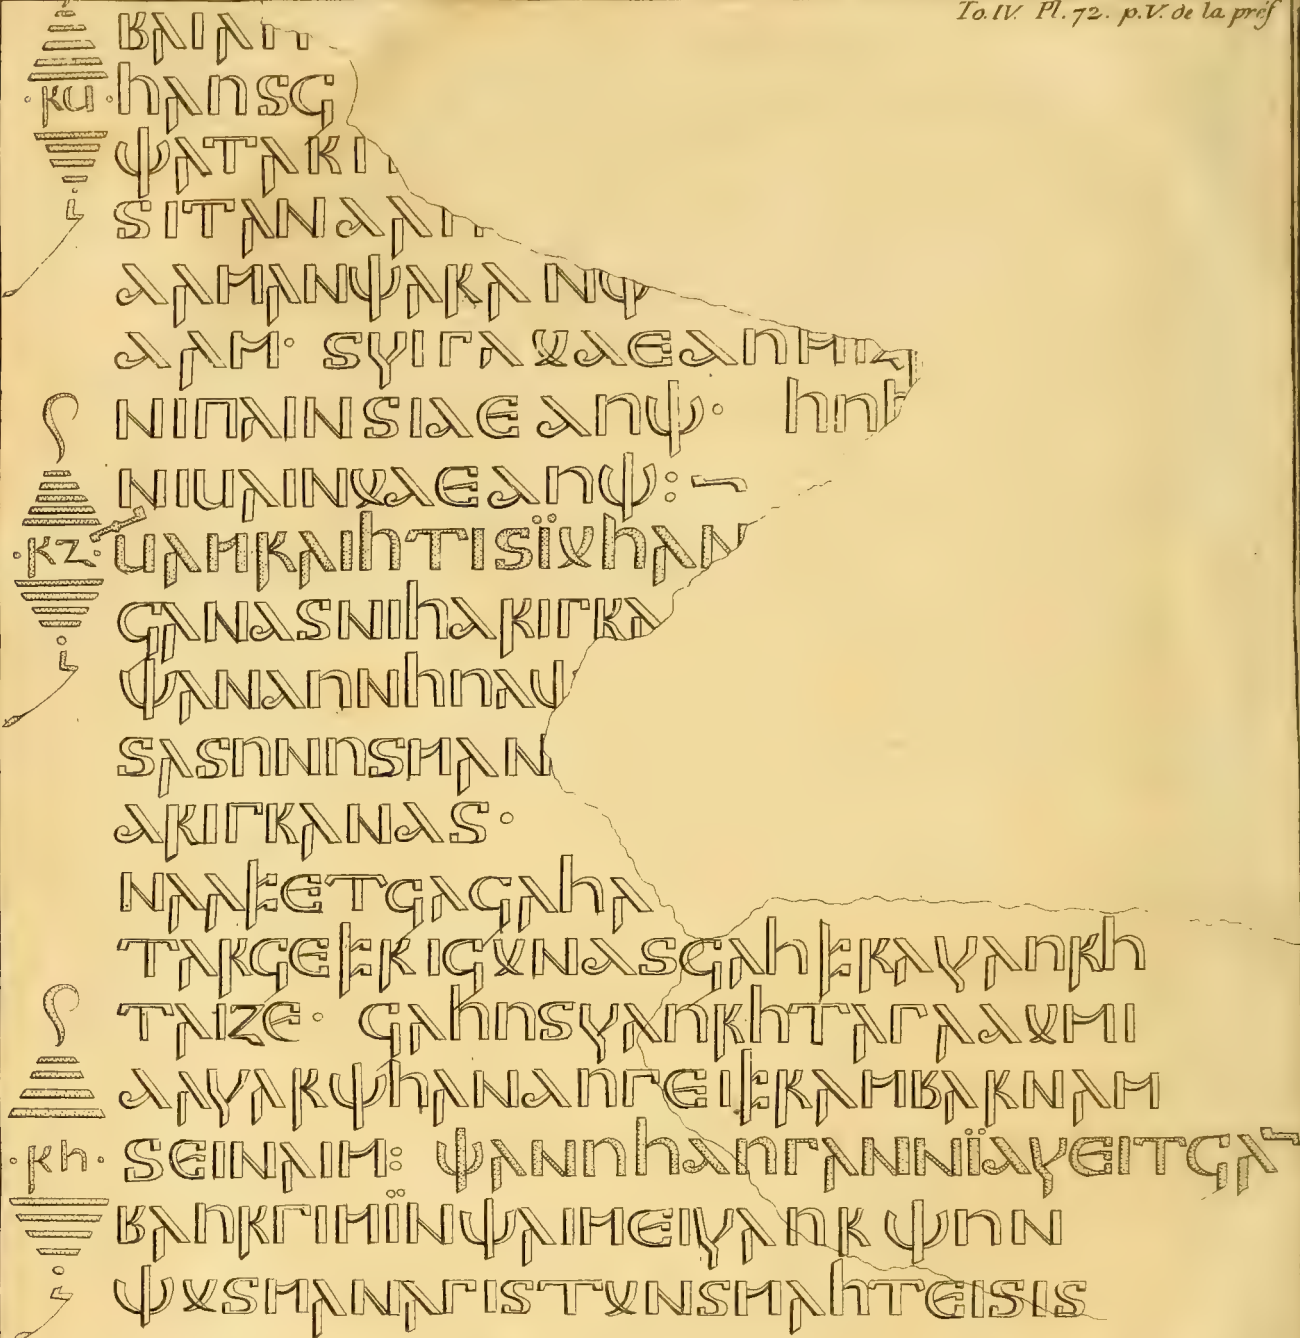 To. IV. Pl. 72. p. V. de la préf
𐌱𐌰𐌹𐌰𐌿
·𐌺𐌵· 𐌷𐌰𐌿𐍃𐌾
𐌸𐌰𐍄𐌰𐌺𐌿
𐍃𐌹𐍄𐌰𐌽𐌳𐌰𐌼
𐌳𐌰𐌼𐌰𐌽𐌸𐌰𐍂𐌰𐌽𐌸
𐌳𐌰𐌼· 𐍃𐍅𐌹𐌲𐌻𐍉𐌳𐌴𐌳𐌿𐌼𐌹𐌶𐍅
𐌽𐌹𐍀𐌻𐌹𐌽𐍃𐌹𐌳𐌴𐌳𐌿𐌸· 𐌷𐌿𐍆
𐌽𐌹𐌵𐌰𐌹𐌽𐍉𐌳𐌴𐌳𐌿𐌸:
·𐌺𐌶· 𐌵𐌰𐌼𐍂𐌰𐌹𐌷𐍄𐌹𐍃𐌹̈𐍉𐌷𐌰𐌽
𐌾𐌰𐌽𐌳𐍃𐌽𐌹𐌷𐌳𐍂𐌹𐌲𐌺𐌰
𐌸𐌰𐌽𐌳𐌿𐌽𐌷𐌿𐌻𐌸
𐍃𐌰𐍃𐌿𐌽𐌿𐍃𐌼𐌰𐌽
𐌳𐍂𐌹𐌲𐌺𐌰𐌽𐌳𐍃·
𐌽𐌰𐌰𐍆𐌴𐍄𐌾𐌰𐌾𐌰𐌷𐌰
𐍄𐌰𐍂𐌾𐌴𐍆𐍂𐌹𐌾𐍉𐌽𐌳𐍃𐌾𐌰𐌷𐍆𐍂𐌰𐍅𐌰𐌿𐍂𐌷
𐍄𐌰𐌹𐌶𐌴· 𐌾𐌰𐌷𐌿𐍃𐍅𐌰𐌿𐍂𐌷𐍄𐌰𐌲𐌰𐌳𐍉𐌼𐌹
𐌳𐌰𐍅𐌰𐍂𐌸𐌷𐌰𐌽𐌳𐌿𐌲𐌴𐌹𐍆𐍂𐌰𐌼𐌱𐌰𐍂𐌽𐌰𐌼
·𐌺𐌷· 𐍃𐌴𐌹𐌽𐌰𐌹𐌼: 𐌸𐌰𐌽𐌿𐌷𐌳𐌿𐌲𐌰𐌽𐌽𐌹̈𐌳𐍅𐌴𐌹𐍄𐌾𐌰
𐌱𐌰𐌿𐍂𐌲𐌹𐌼𐌹̈𐌽𐌸𐌰𐌹𐌼𐌴𐌹𐍅𐌰𐌿𐍂𐌸𐌿𐌽
𐌸𐍉𐍃𐌼𐌰𐌽𐌰𐌲𐌹𐍃𐍄𐍉𐌽𐍃𐌼𐌰𐌷𐍄𐌴𐌹𐍃𐌹𐍃